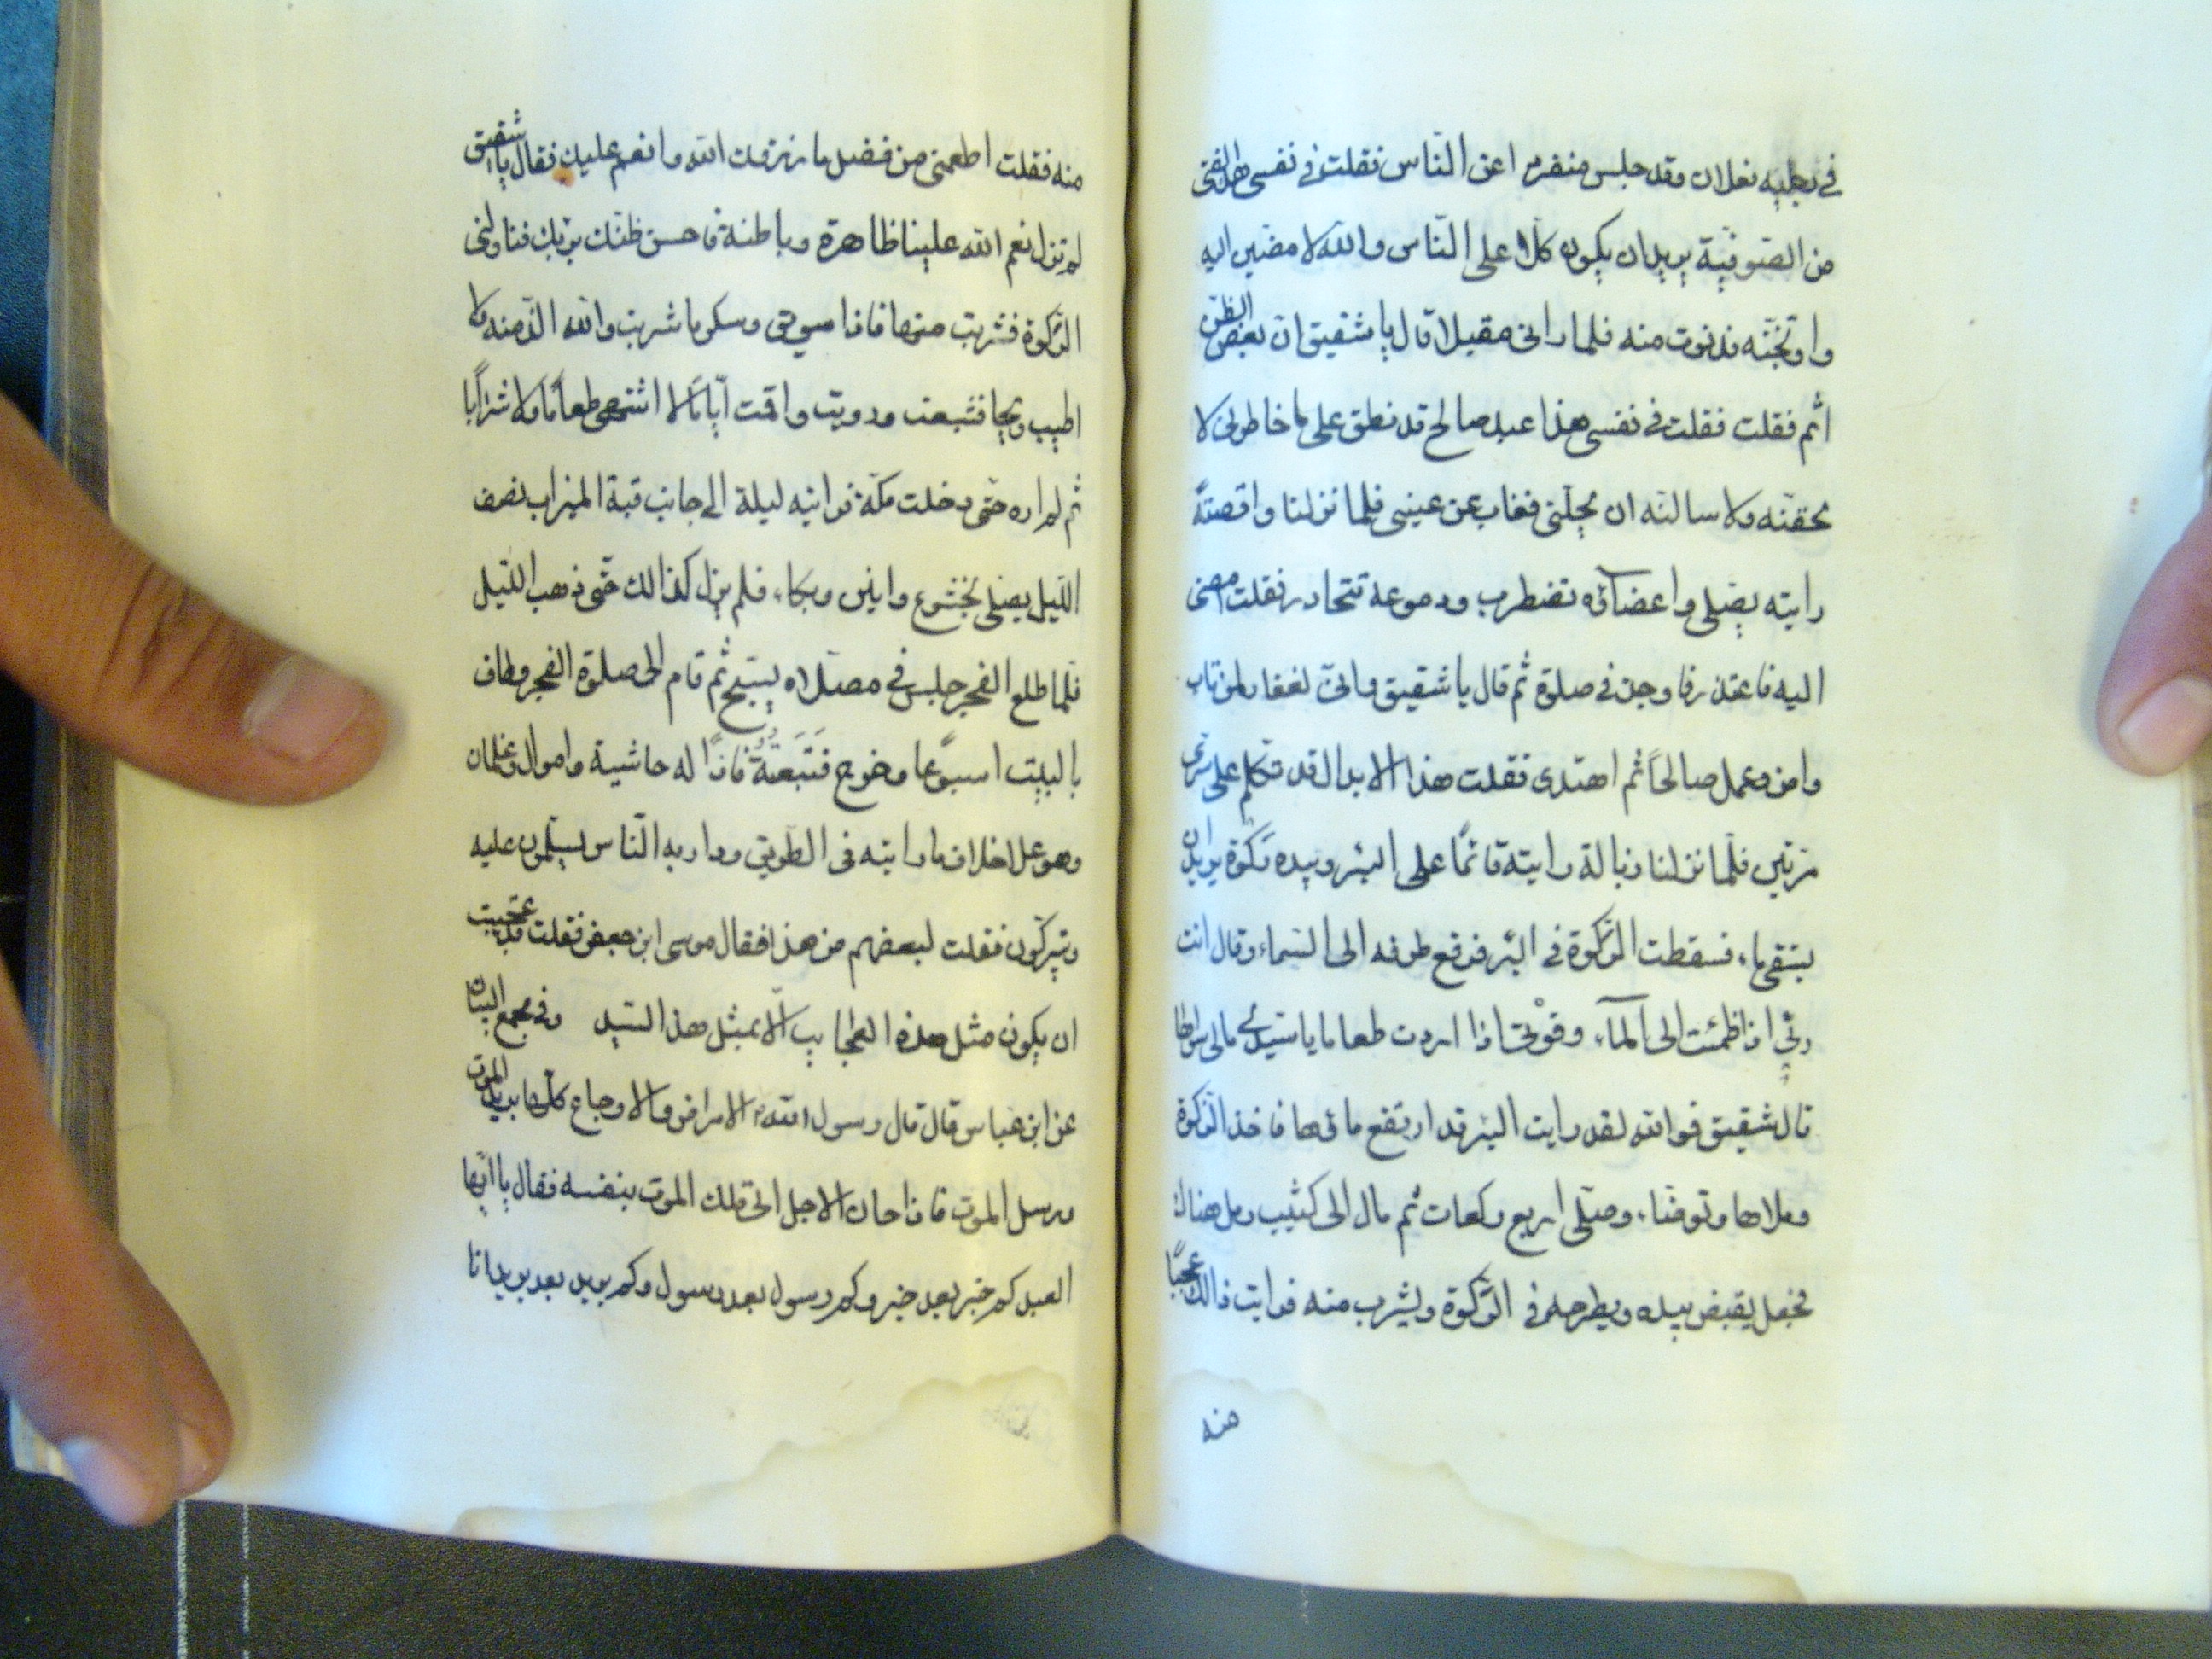 في رجليه نعلان وقد جلس منفردا عن الناس فقلت في نفسي هذا الفتى
من الصّوفيّة يريد ان يكون كلّا على النّاس والله لامضين اليه
واوبّخنّه فدنوت منه فلما راني مقبلا قال يا شقيق انّ بعض الظنّ
اثم فقلت فقلت في نفسي هذا عبد صالح قد نطق على ما خاطري لا
لحقنّه ولاسالنّه ان يحلّني فغاب عن عيني فلما نزلنا واقصتهً
رايته يصلّي واعضاؤه تضطرب ودموعه تتحادر فقلت امضى
اليه فاعتذر فاوجز في صلوة ثم قال يا شقيق وانّى لغفار لمن تاب
وامن وعمل صالحاً ثم اهتدى فقلت هذا الابدال قد تكلّم على سرّى
مرّتين فلمّا نزلنا زبالة رايته قائمًا على البئر وبيده رَكوة يريد ان
يستقي ماء فسقطت الرّكوة في البئر فرقع طرفه الى السّماء وقال انت
ربّي اذا ظمئت الى المآء وقوتى اذا اردت طعاما يا سيّدي مالي سواها
قال شقيق فوالله لقد رايت البئر قد ارتفع مائها فاخذ الرّكوة
وملاها وتوضّاء وصلّى اربع ركعات ثم مال الى كثيب رمل هناك
فجعل يقبض بيده ويطرحه في الرّكوة ويشرب منه فرايت ذالك عجبًا
منه
منه فقلت اطعمني من فضل ما رزقك الله وانعم عليك فقال يا شقيق
لم تزل نعم الله علينا ظاهرة وباطنة فاحسن ظنّك بربّك فناولني
الرّكوة فشربت منها فاذا سويق وسكر ما شربت والله الذ منه ولا
اطيب ريحا فشبعت ورويت واقمت ايّامًا لا اشتهي طعامًا ولا شرابًا
ثم لم اره حتّى دخلت مكّة فرايته ليلة الى جانب قبة الميزاب نصف
اللّيل يصلّي بخشوع وانين وبكاء فلم يزل كذالك حتّى ذهب اللّيل
فلمّا طلع الفجر جلس في مصلاه يسبّح ثم قام الى صلوة الفجر وطاف
بالبيت اسبوعًا وخرج فَتَبِعتُهُ فاذًا له حاشية واموال وغلمان
وهو على خلاف ما رايته في الطّريق ودار به النّاس يسلّمون عليه
ويتبركون فقلت لبعضهم من هذا فقال موسى ابن جعفر فقلت قد عجبت
ان يكون مثل هذه العجايب الّا بمثل هذا السّيد وفي مجمع البيان
عن ابن عباس قال قال رسول الله ص الامراض والاوجاع كلّها بريد الموت
ورسل الموت فاذا حان الاجل اتى ملك الموت بنفسه فقال يا ايّها
العبد كم خبر بعد خبر وكم رسول بعد رسول وكم بريد بعد بريد انا